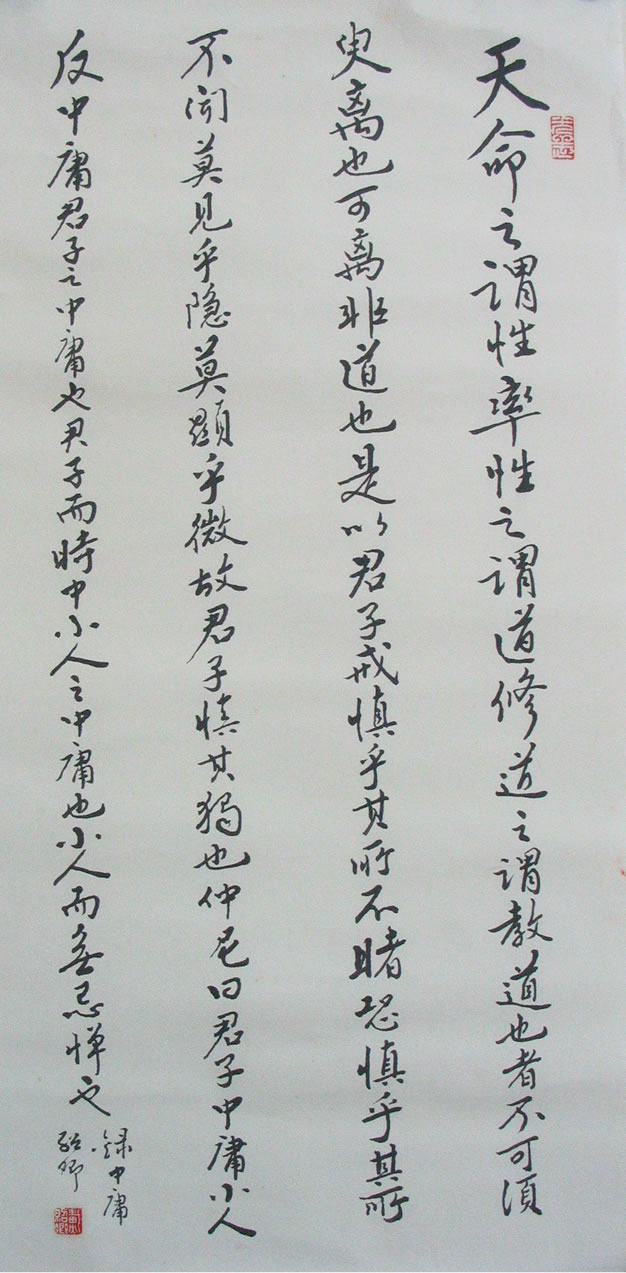 天命之谓性率性之谓道修道之谓教道也者不可须
臾离也可离非道也是以君子戒慎乎其所不睹恐慎乎其所
不闻莫见乎隐莫顕乎微故君子慎其独也仲尼曰君子中庸小人
反中庸君子之中庸也君子而時中小人之中庸也小人而無忌惮也
録中庸